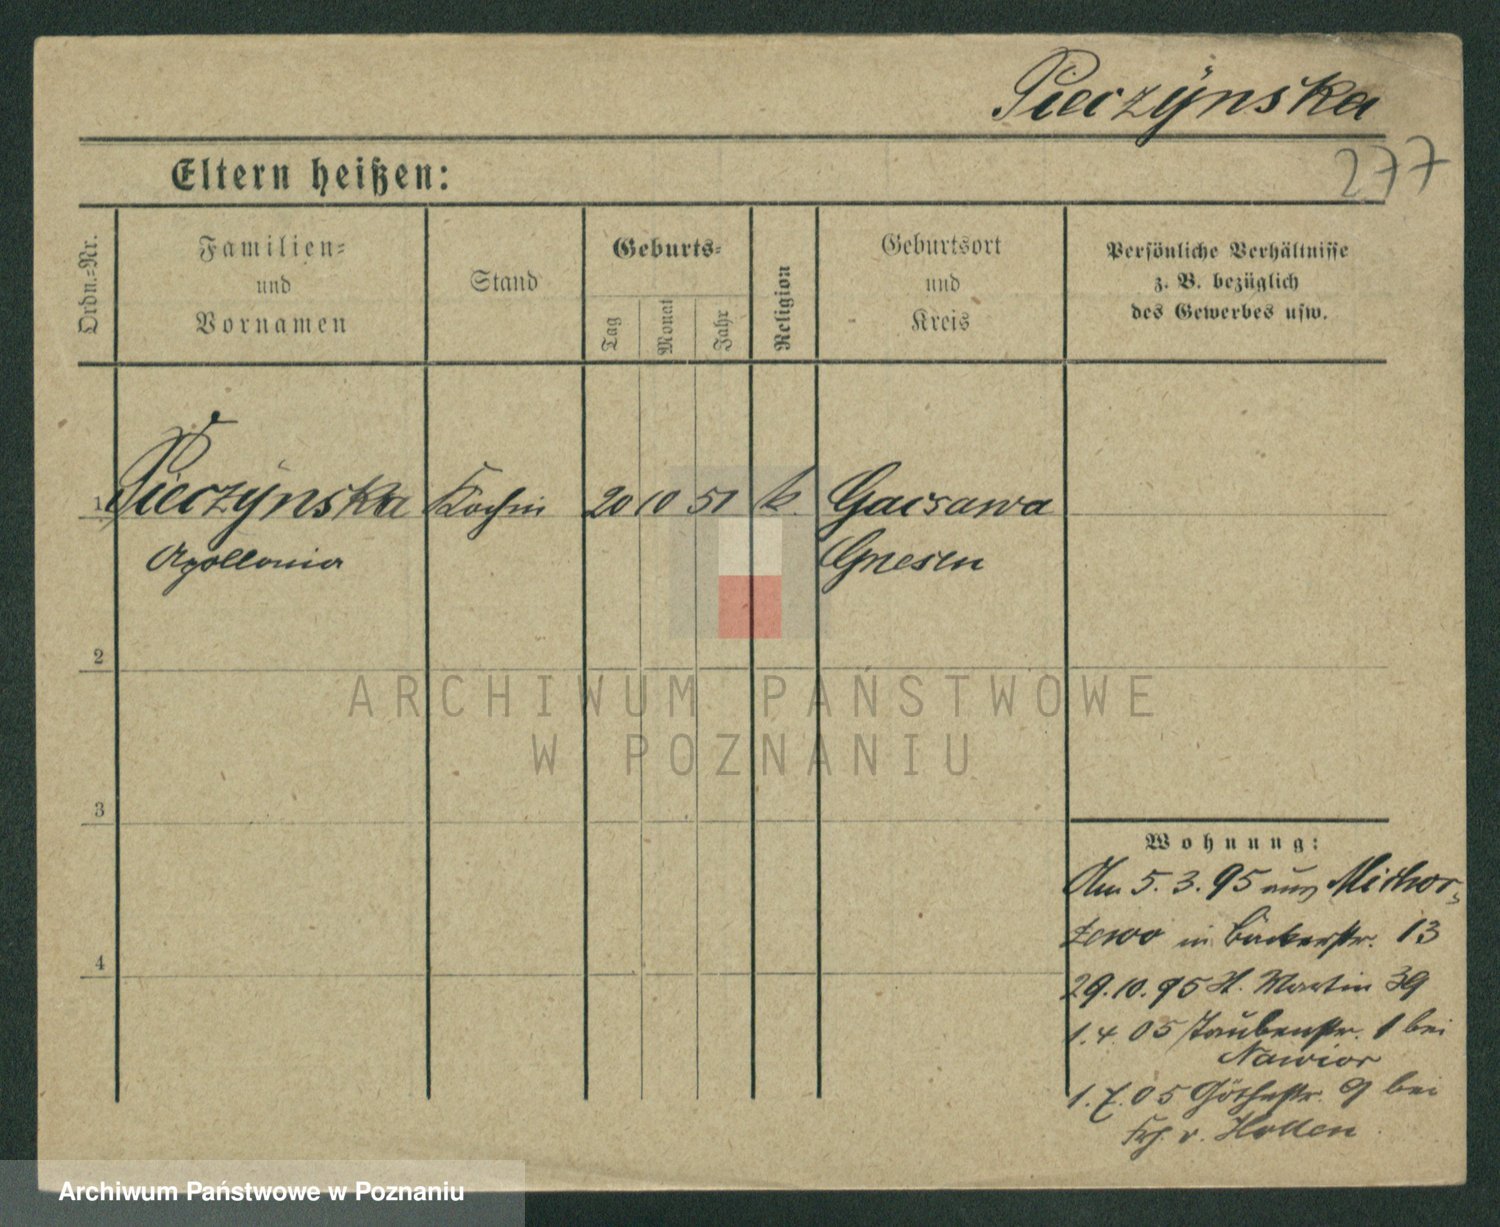 Pieczÿnska
277
Eltern heißen:
Ordn.=Nr.
Familien=
und
Vornamen
Stand
Geburts=
Tag
Monat
Jahr
Religion
Geburtsort
und
Kreis
Persönliche Verhältnisse
z. B. bezüglich
des Gewerbes usw.
1 Pieczÿnska Köchin 20 10 51 k. Gacsawa
Apollonia Gnesen
2
3
4
Wohnung:
Am 5.3.95 aus Michor=
zewo in Bäckerstr. 13
29.10.95 St. Martin 39
1.4.05 Taubenstr. 1 bei
Nawior
1.7.05 Göthestr. 9 bei
v. Hollen
ARCHIWUM PAŃSTWOWE
W POZNANIU
Archiwum Państwowe w Poznaniu